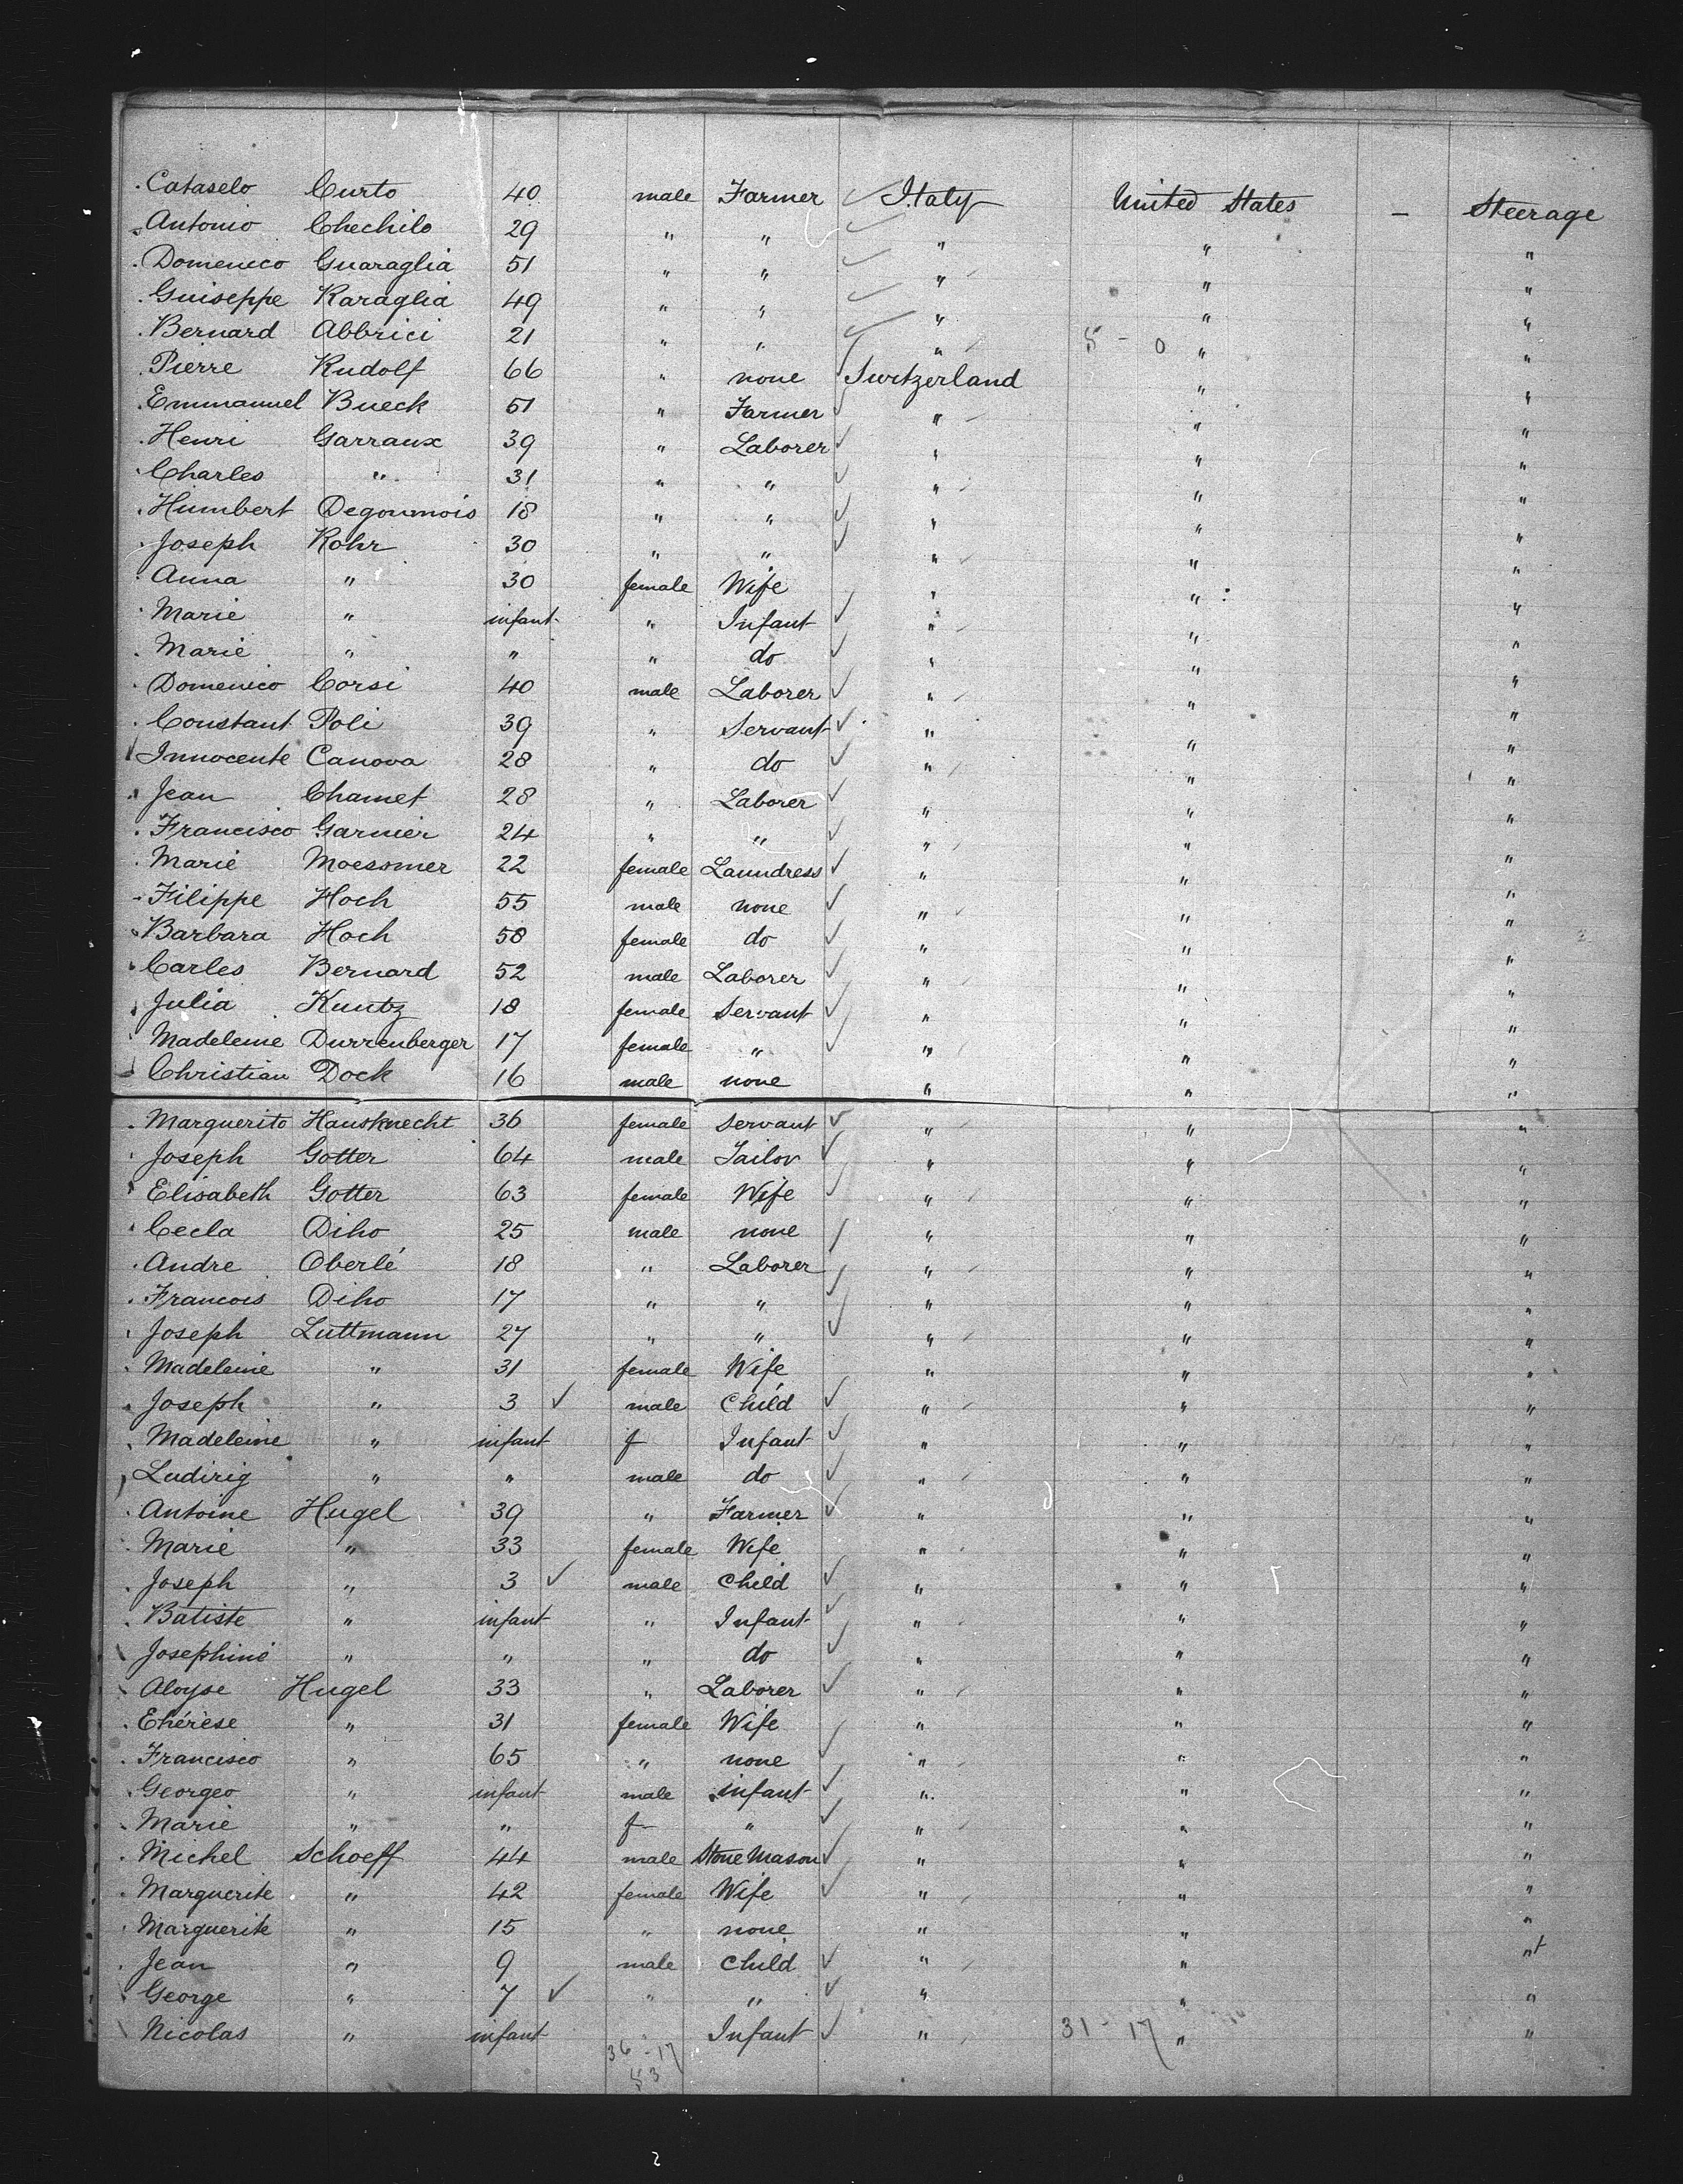 Cataselo Curto 40 male Farmer Italy United States - Steerage
Antonio Chechilo 29 " " " " "
Domenico Guaraglia 51 " " " " "
Guiseppe Karaglia 49 " " " " "
Bernard Abbrici 21 " " " 5 - 0 " "
Pierre Rudolf 66 " none Switzerland " "
Emmanuel Bueck 51 " Farmer " " "
Henri Garraux 39 " Laborer " " "
Charles " 31 " " " " "
Humbert Degoumois 18 " " " " "
Joseph Rohr 30 " " " " "
Anna " 30 female Wife " " "
Marie " infant " Infant " " "
Marie " " " do " " "
Domenico Corsi 40 male Laborer " " "
Constant Poli 39 " Servant " " "
Innocente Canova 28 " do " " "
Jean Chamet 28 " Laborer " " "
Francisco Garnier 24 " " " " "
Marie Moessmer 22 female Laundress " " "
Filippe Hoch 55 male none " " "
Barbara Hoch 58 female do " " "
Carles Bernard 52 male Laborer " " "
Julia Kuntz 18 female Servant " " "
Madeleine Durrenberger 17 female " " " "
Christian Dock 16 male none " " "
Marguerito Hausknecht 36 female Servant " " "
Joseph Gotter 64 male Tailor " " "
Elisabeth Gotter 63 female Wife " " "
Cecla Diho 25 male none " " "
Andre Oberlé 18 " Laborer " " "
Francois Diho 17 " " " " "
Joseph Luttmann 27 " " " " "
Madeleine " 31 female Wife " " "
Joseph " 3 male Child " " "
Madeleine " infant f Infant " " "
Ludirig " " male do " " "
Antoine Hugel 39 " Farmer " " "
Marie " 33 female Wife " " "
Joseph " 3 male Child " " "
Batiste " infant " Infant " " "
Josephine " " " do " " "
Aloyse Hugel 33 " Laborer " " "
Ehérèse " 31 female Wife " " "
Francisco " 65 " none " " "
Georgeo " infant male infant " " "
Marie " " f " " " "
Michel Schoeff 44 male Stone Mason " " "
Marguerite " 42 female Wife " " "
Marguerite " 15 " none " " "
Jean " 9 male Child " " "
George " 7 " " " " "
Nicolas " infant Infant " 31 - 17 " "
36 - 17
53
2